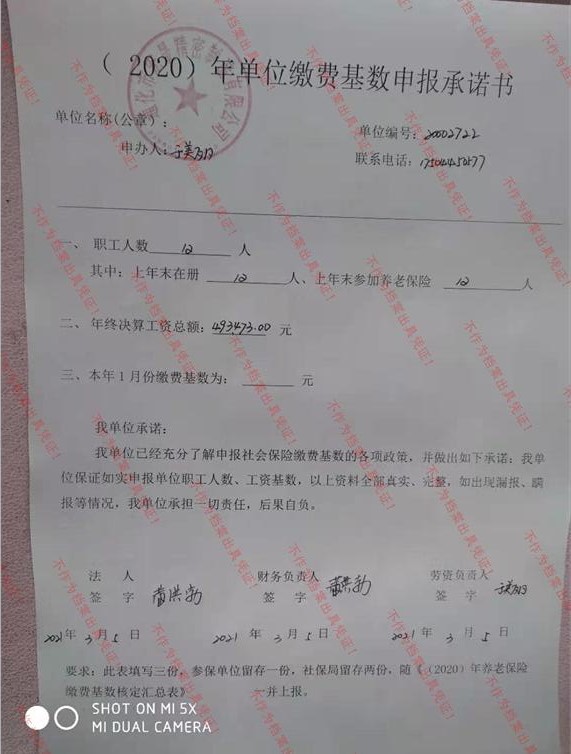 （ 2020）年单位缴费基数申报承诺书
单位名称(公章)：
单位编号：20002722
申办人：
联系电话：
一、 职工人数 12 人
其中：上年末在册 12 人、上年末参加养老保险 12 人
二、年终决算工资总额：493473.00 元
三、本年1月份缴费基数为： 元
我单位承诺：
我单位已经充分了解申报社会保险缴费基数的各项政策，并做出如下承诺：我单
位保证如实申报单位职工人数、工资基数，以上资料全部真实、完整，如出现漏报、瞒
报等情况，我单位承担一切责任，后果自负。
法 人 财务负责人 劳资负责人
签 字 黄洪勃 签 字 黄洪勃 签 字
2021年 3 月 5 日 2021 年 3 月 5 日 2021 年 3 月 5 日
要求：此表填写三份，参保单位留存一份，社保局留存两份，随《（2020）年养老保险
缴费基数核定汇总表》 一并上报。
不作为档案出具凭证！
SHOT ON MI 5X
MI DUAL CAMERA